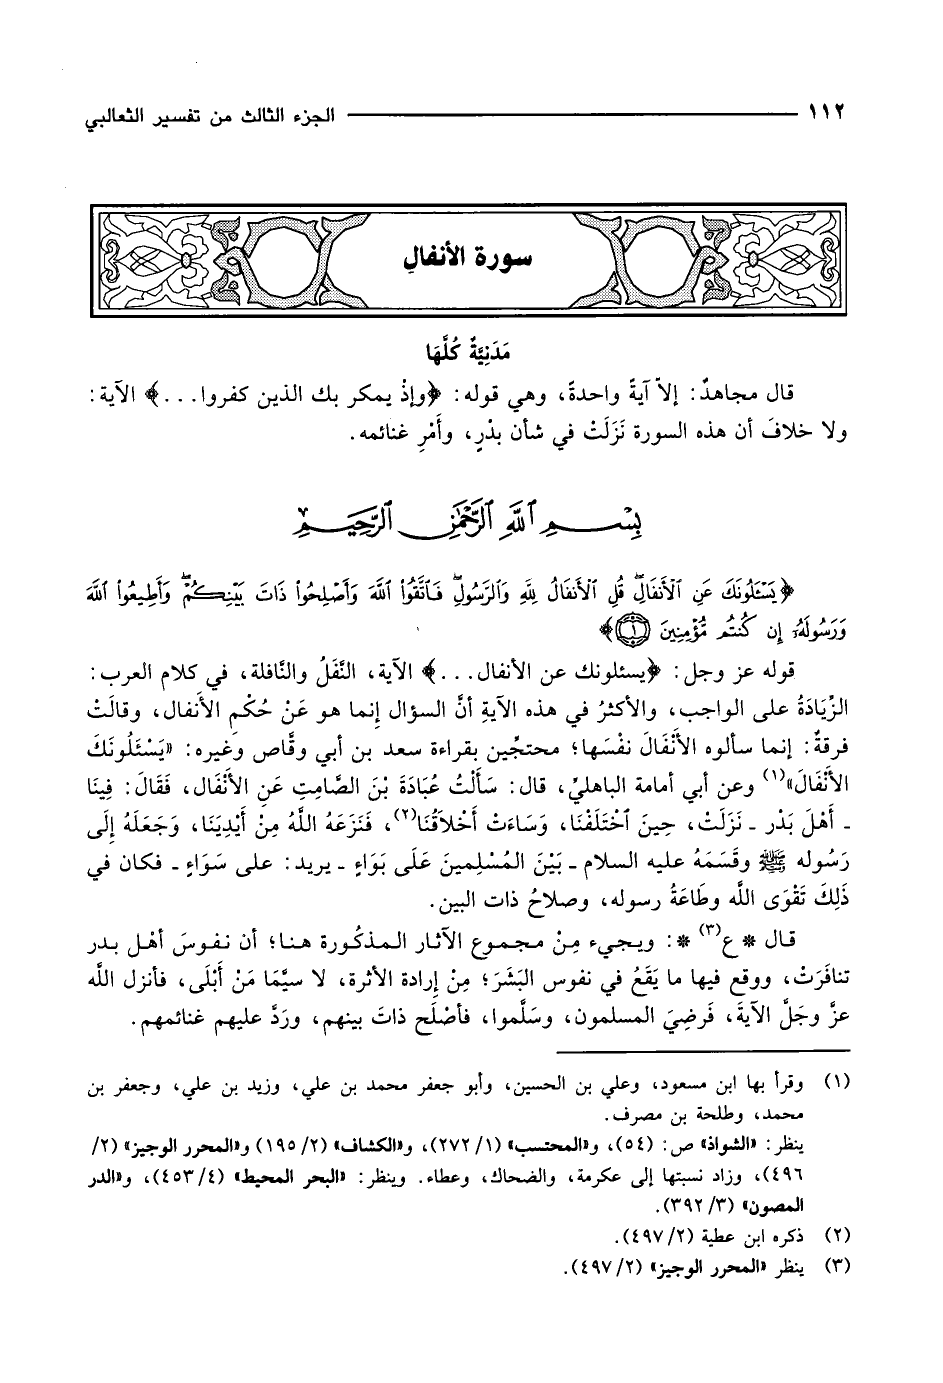 ١١٢ الجزء الثالث من تفسير الثعالبي
سورة الأنفالِ
مَدَنِيَّةٌ كُلَّهَا
قال مجاهدٌ: إلاّ آيةً واحدةً، وهي قوله: ﴿وإذْ يمكر بك الذين كفروا...﴾ الآية:
ولا خلافَ أن هذه السورة نَزَلَتْ في شأن بدْرٍ، وأَمْرِ غنائمه.
بِسْمِ ٱللَّهِ ٱلرَّحْمَٰنِ ٱلرَّحِيمِ
﴿يَسْـَٔلُونَكَ عَنِ ٱلْأَنفَالِۖ قُلِ ٱلْأَنفَالُ لِلَّهِ وَٱلرَّسُولِۖ فَٱتَّقُوا۟ ٱللَّهَ وَأَصْلِحُوا۟ ذَاتَ بَيْنِكُمْۖ وَأَطِيعُوا۟ ٱللَّهَ
وَرَسُولَهُۥٓ إِن كُنتُم مُّؤْمِنِينَ ١﴾
قوله عز وجل: ﴿يسئلونك عن الأنفال...﴾ الآية، النَّفَلُ والنَّافلة، في كلام العرب:
الزِّيَادَةُ على الواجب، والأكثرُ في هذه الآيةِ أنَّ السؤال إنما هو عَنْ حُكْمِ الأَنفال، وقالَتْ
فرقةٌ: إنما سألوه الأَنْفَالَ نفْسَها؛ محتجِّين بقراءة سعد بن أبي وقَّاص وغيره: «يَسْئَلُونَكَ
الأَنْفَالَ»(١) وعن أبي أمامة الباهليِّ، قال: سَأَلْتُ عُبَادَةَ بْنَ الصَّامِتِ عَنِ الأَنْفَال، فَقَالَ: فِينَا
ـ أَهْلَ بَدْر ـ نَزَلَتْ، حِينَ ٱخْتَلَفْنَا، وَسَاءَتْ أَخْلاَقُنَا(٢)، فَنَزَعَهُ اللَّهُ مِنْ أَيْدِينَا، وَجَعَلَهُ إِلَى
رَسُوله ﷺ وقَسَمَهُ عليه السلام ـ بَيْنَ المُسْلِمينَ عَلَى بَوَاءٍ ـ يريد: على سَوَاءٍ ـ فكان في
ذَلِكَ تَقْوَى الله وطَاعَةُ رسوله، وصلاحُ ذات البين.
قال * ع(٣) *: ويجيء مِنْ مجموع الآثار المذكُورة هنا؛ أن نفوسَ أهْل بدر
تنافَرَتْ، ووقع فيها ما يَقَعُ في نفوس البَشَرَ؛ مِنْ إِرادة الأثرة، لا سيَّمَا مَنْ أَبْلَى، فأنزل الله
عزَّ وجَلَّ الآيةَ، فَرضِيَ المسلمون، وسَلَّموا، فأصْلَح ذاتَ بينهم، وردَّ عليهم غنائمهم.
(١) وقرأ بها ابن مسعود، وعلي بن الحسين، وأبو جعفر محمد بن علي، وزيد بن علي، وجعفر بن
محمد، وطلحة بن مصرف.
ينظر: «الشواذ» ص: (٥٤)، و«المحتسب» (١/ ٢٧٢)، و«الكشاف» (٢/ ١٩٥) و«المحرر الوجيز» (٢/
٤٩٦)، وزاد نسبتها إلى عكرمة، والضحاك، وعطاء. وينظر: «البحر المحيط» (٤/ ٤٥٣)، و«الدر
المصون» (٣/ ٣٩٢).
(٢) ذكره ابن عطية (٢/ ٤٩٧).
(٣) ينظر «المحرر الوجيز» (٢/ ٤٩٧).